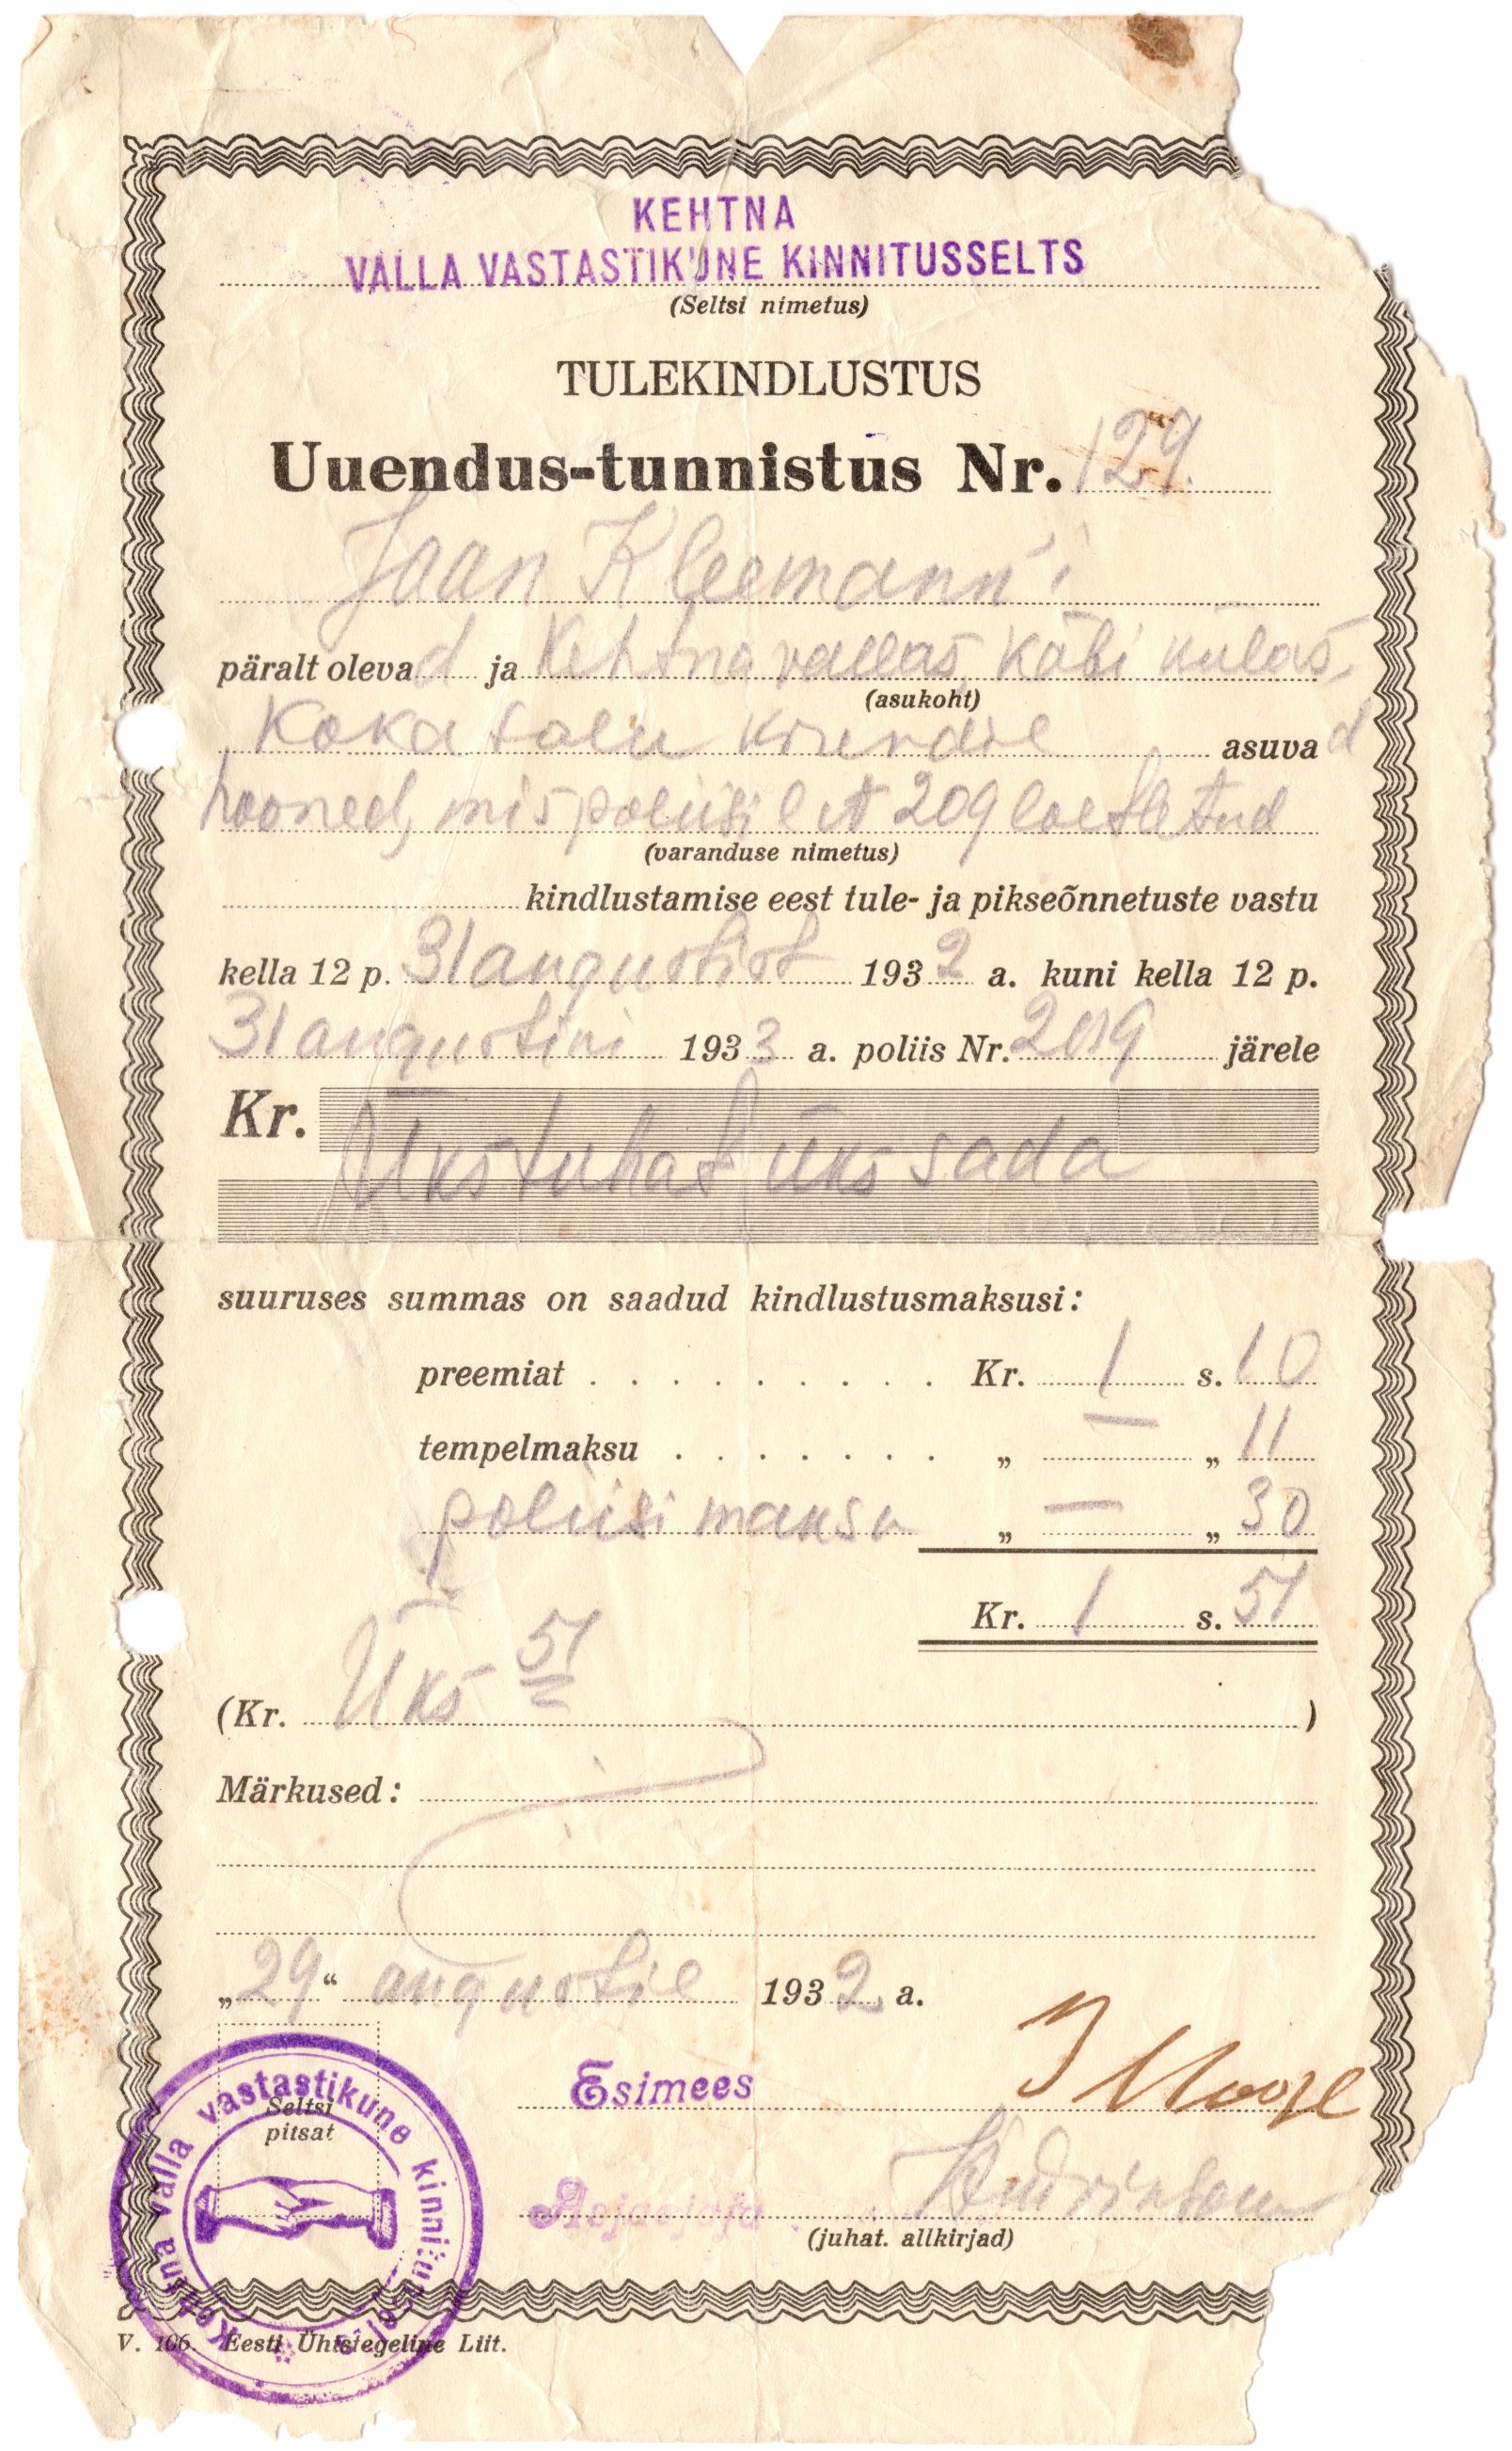 KEHTNA
VALLA VASTASTIKUNE KINNITUSSELTS
(Seltsi nimetus)
TULEKINDLUSTUS
Uuendus-tunnistus Nr. 129.
Jaan Kleemann'i
päralt olevad ja Kehtna vallas, Käbi külas,
(asukoht)
Koka talu krundil asuvad
hooned, mis poliisil № 209 loetletud
(varanduse nimetus)
kindlustamise eest tule- ja pikseõnnetuste vastu
kella 12 p. 31 augustist 1932 a. kuni kella 12 p.
31 augustini 1933 a. poliis Nr. 209 järele
Kr. Ükstuhat ükssada
suuruses summas on saadud kindlustusmaksusi:
preemiat . . . . . . . . . Kr. 1 s. 10
tempelmaksu . . . . . . . „ — „ 11
poliisi maksu „ — „ 30
Kr. 1 s. 51
(Kr. Üks 51 )
Märkused:
„29“ augustil 1932 a.
Esimees
Seltsi
pitsat
Kehtna valla vastastikune kinnitusselts
Asjaajaja
(juhat. allkirjad)
V. 106. Eesti Ühistegeline Liit.